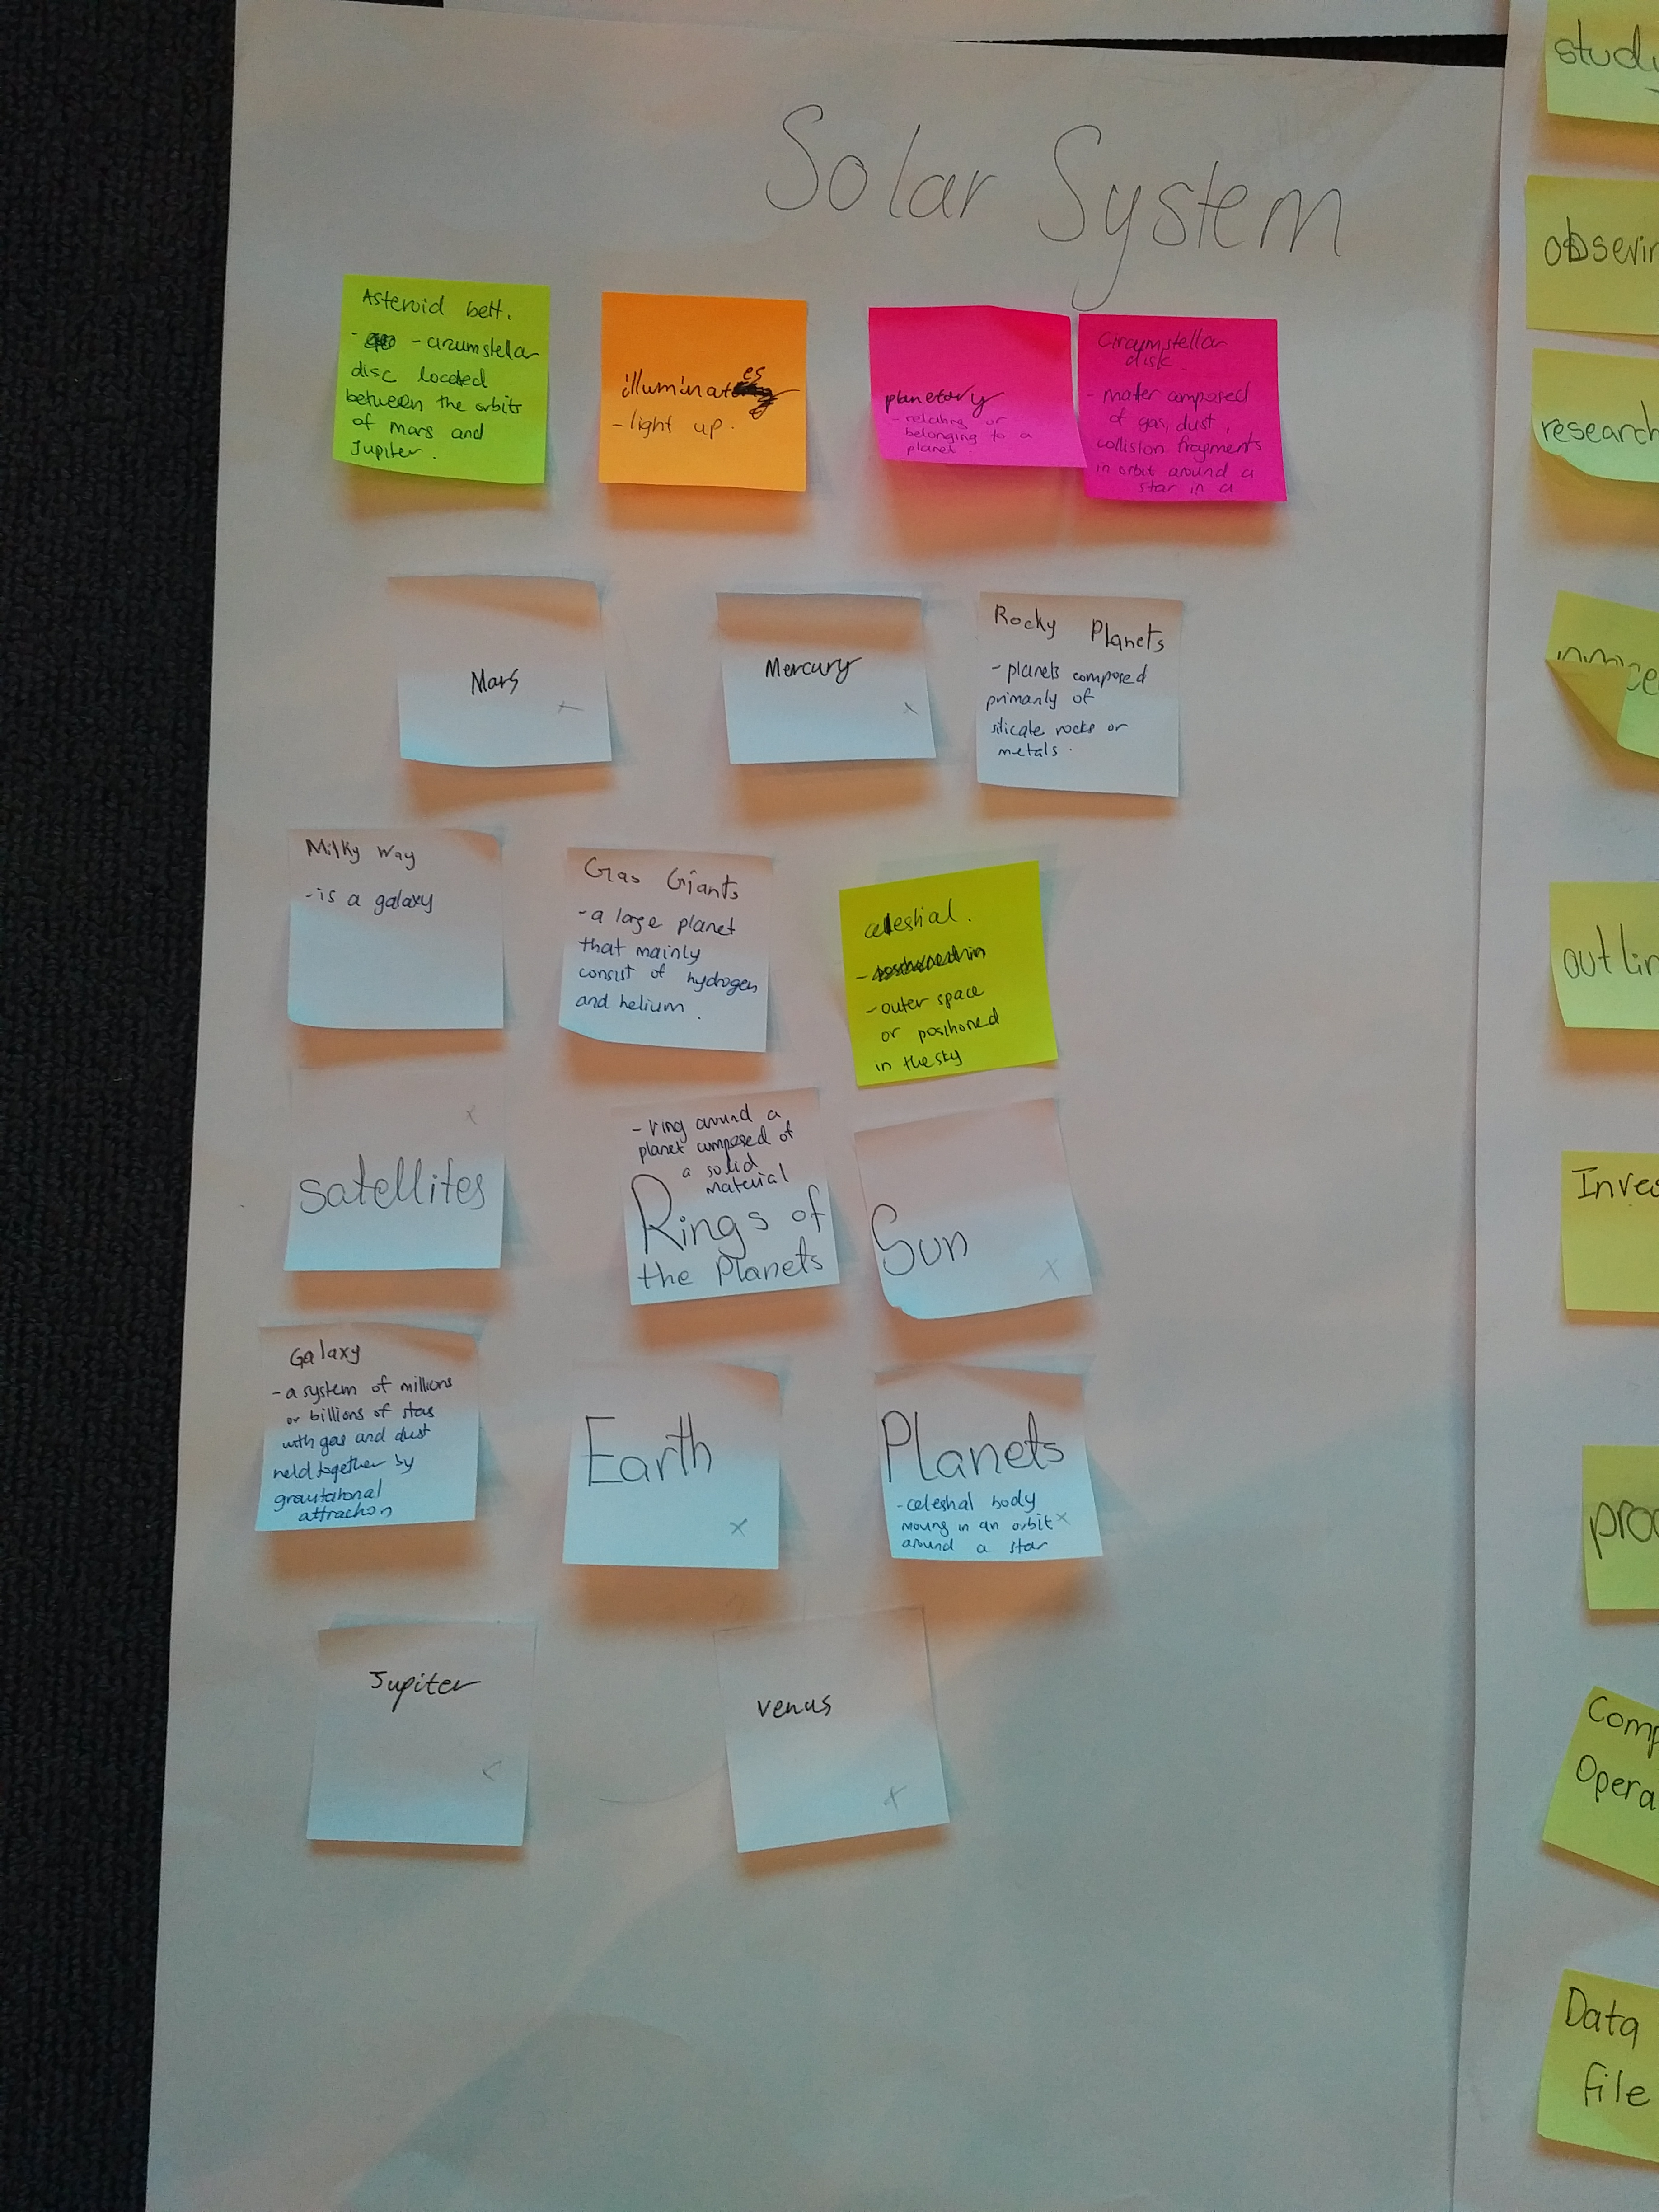 Solar System
Asteroid belt.
- circumstellar
disc located
between the orbits
of Mars and
Jupiter.
illuminates
- light up.
planetary
- relating or
belonging to a
planet.
Circumstellar
disk.
- mater composed
of gas, dust,
collision fragments
in orbit around a
star in a
Mars
Mercury
Rocky Planets
- planets composed
primarily of
silicate rocks or
metals.
Milky Way
- is a galaxy
Gas Giants
- a large planet
that mainly
consist of hydrogen
and helium.
celestial.
- outer space
or positioned
in the sky
satellites
- ring around a
planet composed of
a solid
material
Rings of
the Planets
Sun
Galaxy
- a system of millions
or billions of stars
with gas and dust
held together by
gravitational
attraction
Earth
Planets
- celestial body
moving in an orbit
around a star
Jupiter
venus
study
obserin
research
outlin
Inves
proc
Comp
Opera
Data
file